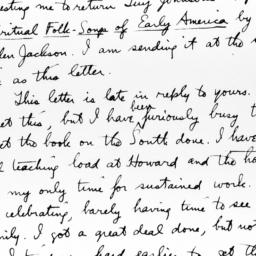 esting me to return Guy Johnson's
iritual Folk-Songs of Early America by
Jackson. I am sending it at the
as this letter.
This letter is late in reply to yours.
this, but I have been furiously busy t
et the book on the South done. I have
l teaching load at Howard and the ho
my only time for sustained work.
celebrating, barely having time to see
mily. I got a great deal done, but not
hard earlier to get th